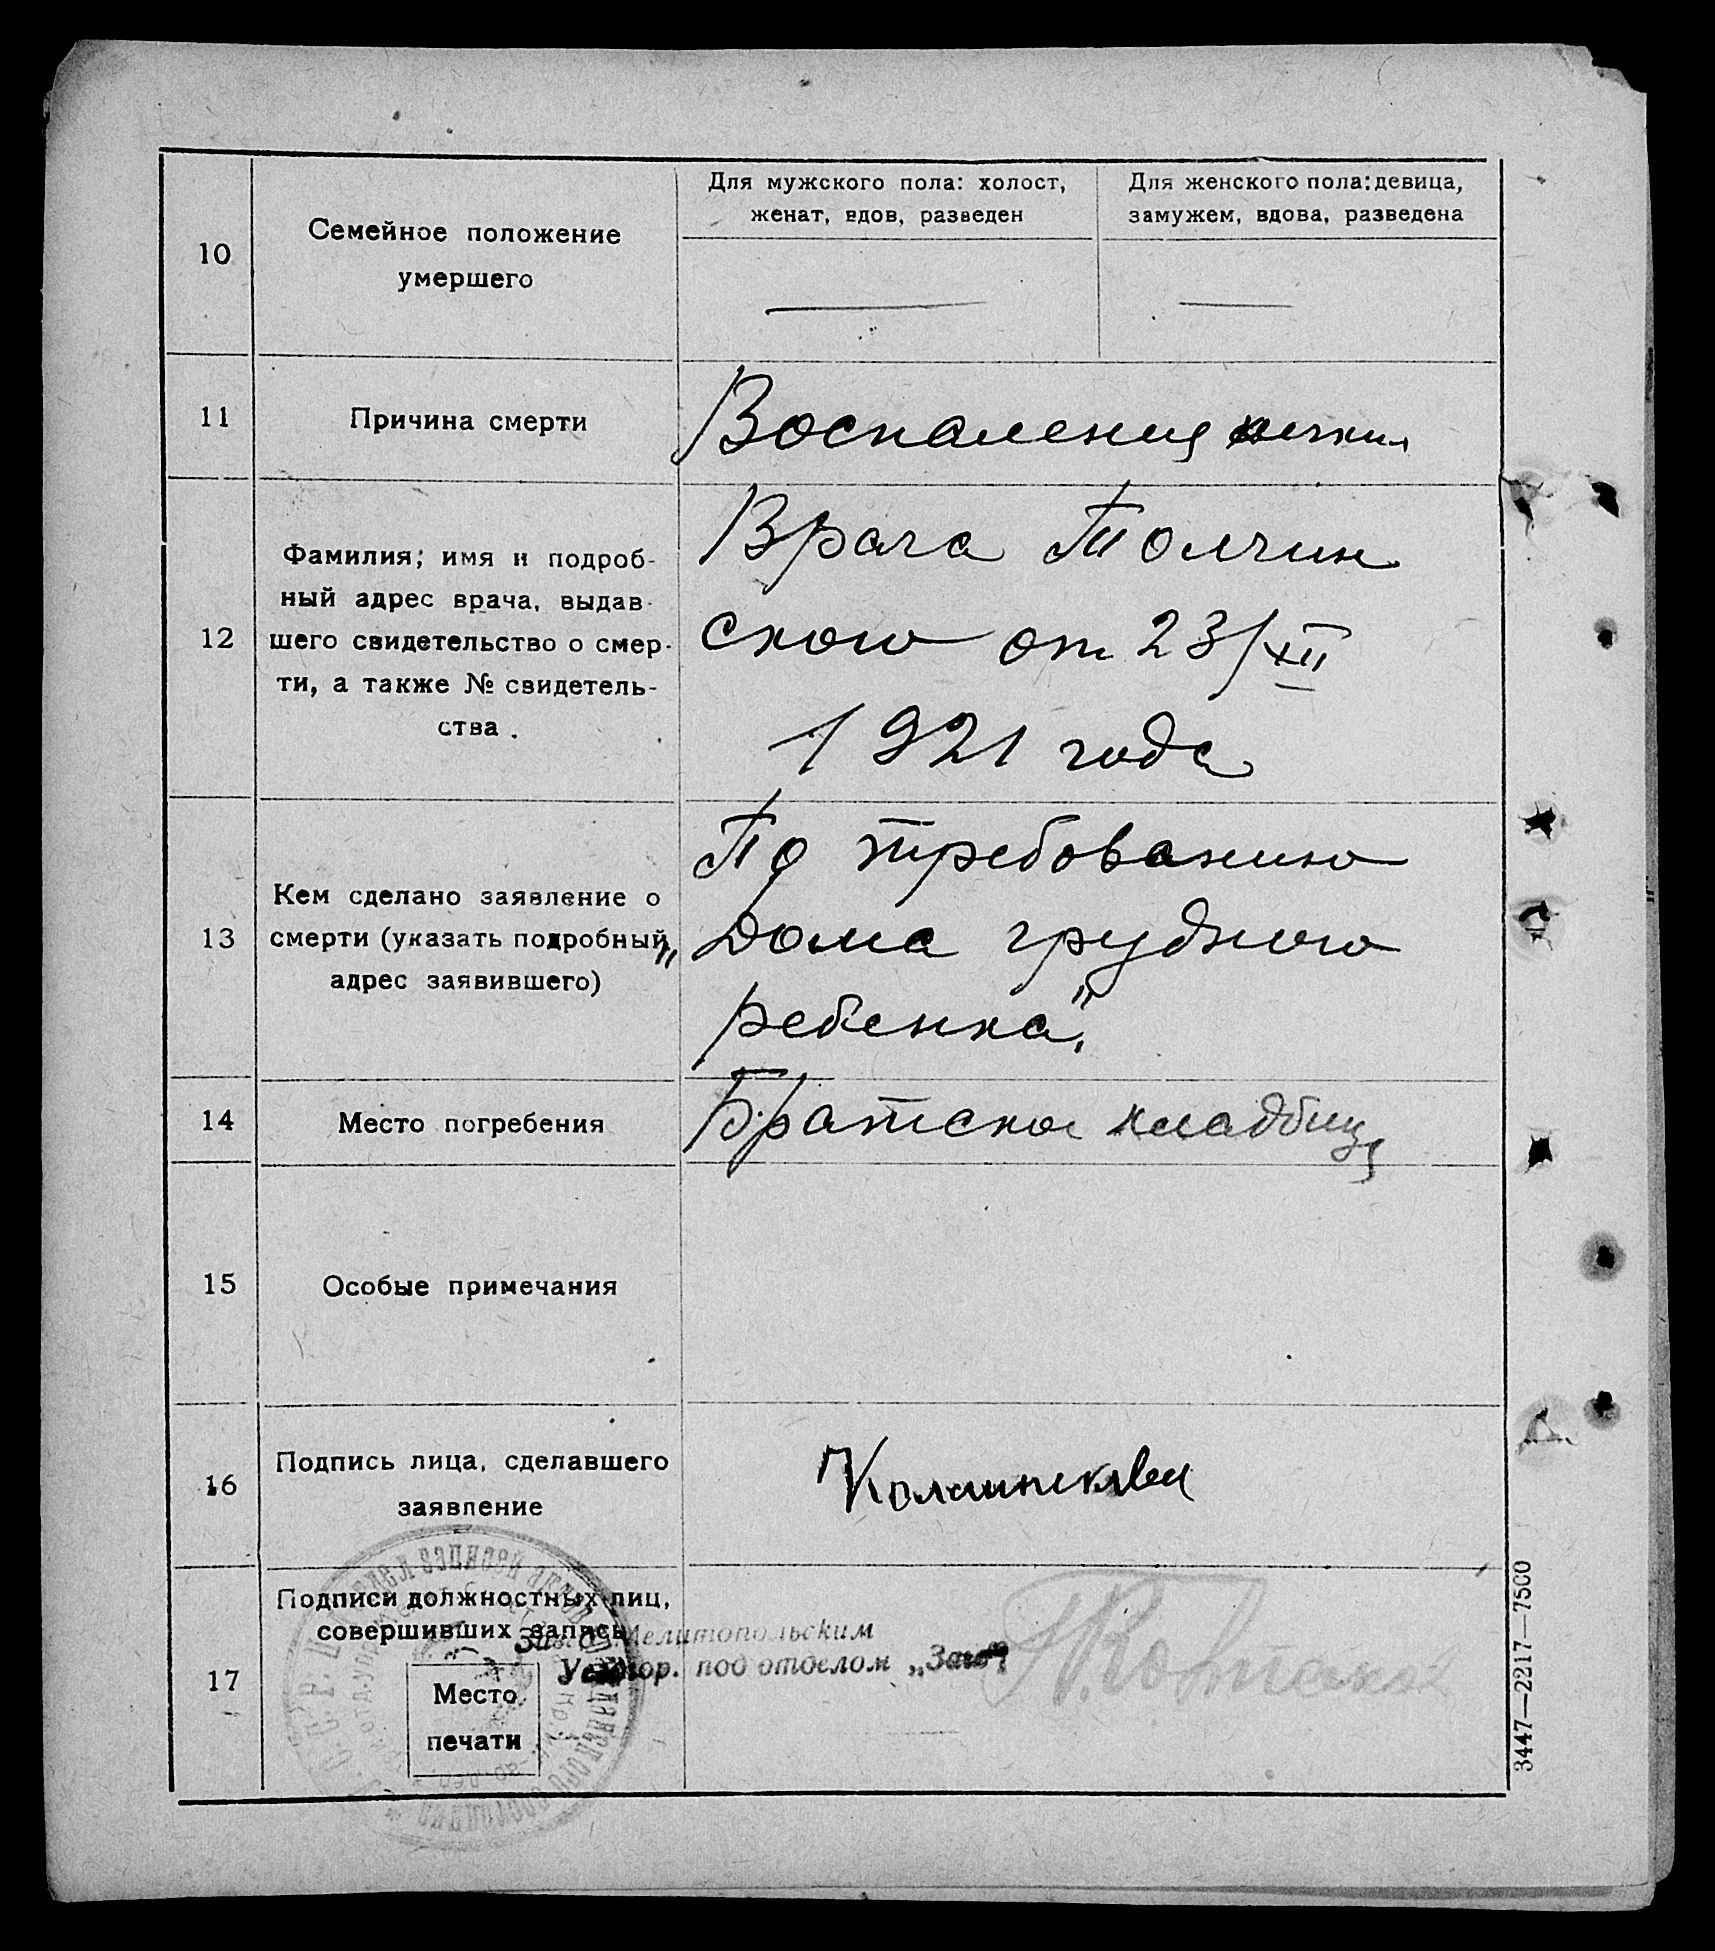 10
Семейное положение
умершего
Для мужского пола: холост,
женат, вдов, разведен
Для женского пола: девица,
замужем, вдова, разведена
11
Причина смерти
Воспаления
12
Фамилия, имя и подроб-
ный адрес врача, выдав-
шего свидетельство о смер-
ти, а также № свидетель-
ства.
Врача Толчин
ского от 23/XII
1921 года
13
Кем сделано заявление о
смерти (указать подробный
адрес заявившего)
По требованию
„Дома грудного
ребенка"
14
Место погребения
Братское кладбище
15
Особые примечания
16
Подпись лица, сделавшего
заявление
17
Подписи должностных лиц,
совершивших запись
Место
печати
Мелитопольским
под отделом
3447—2217—7500